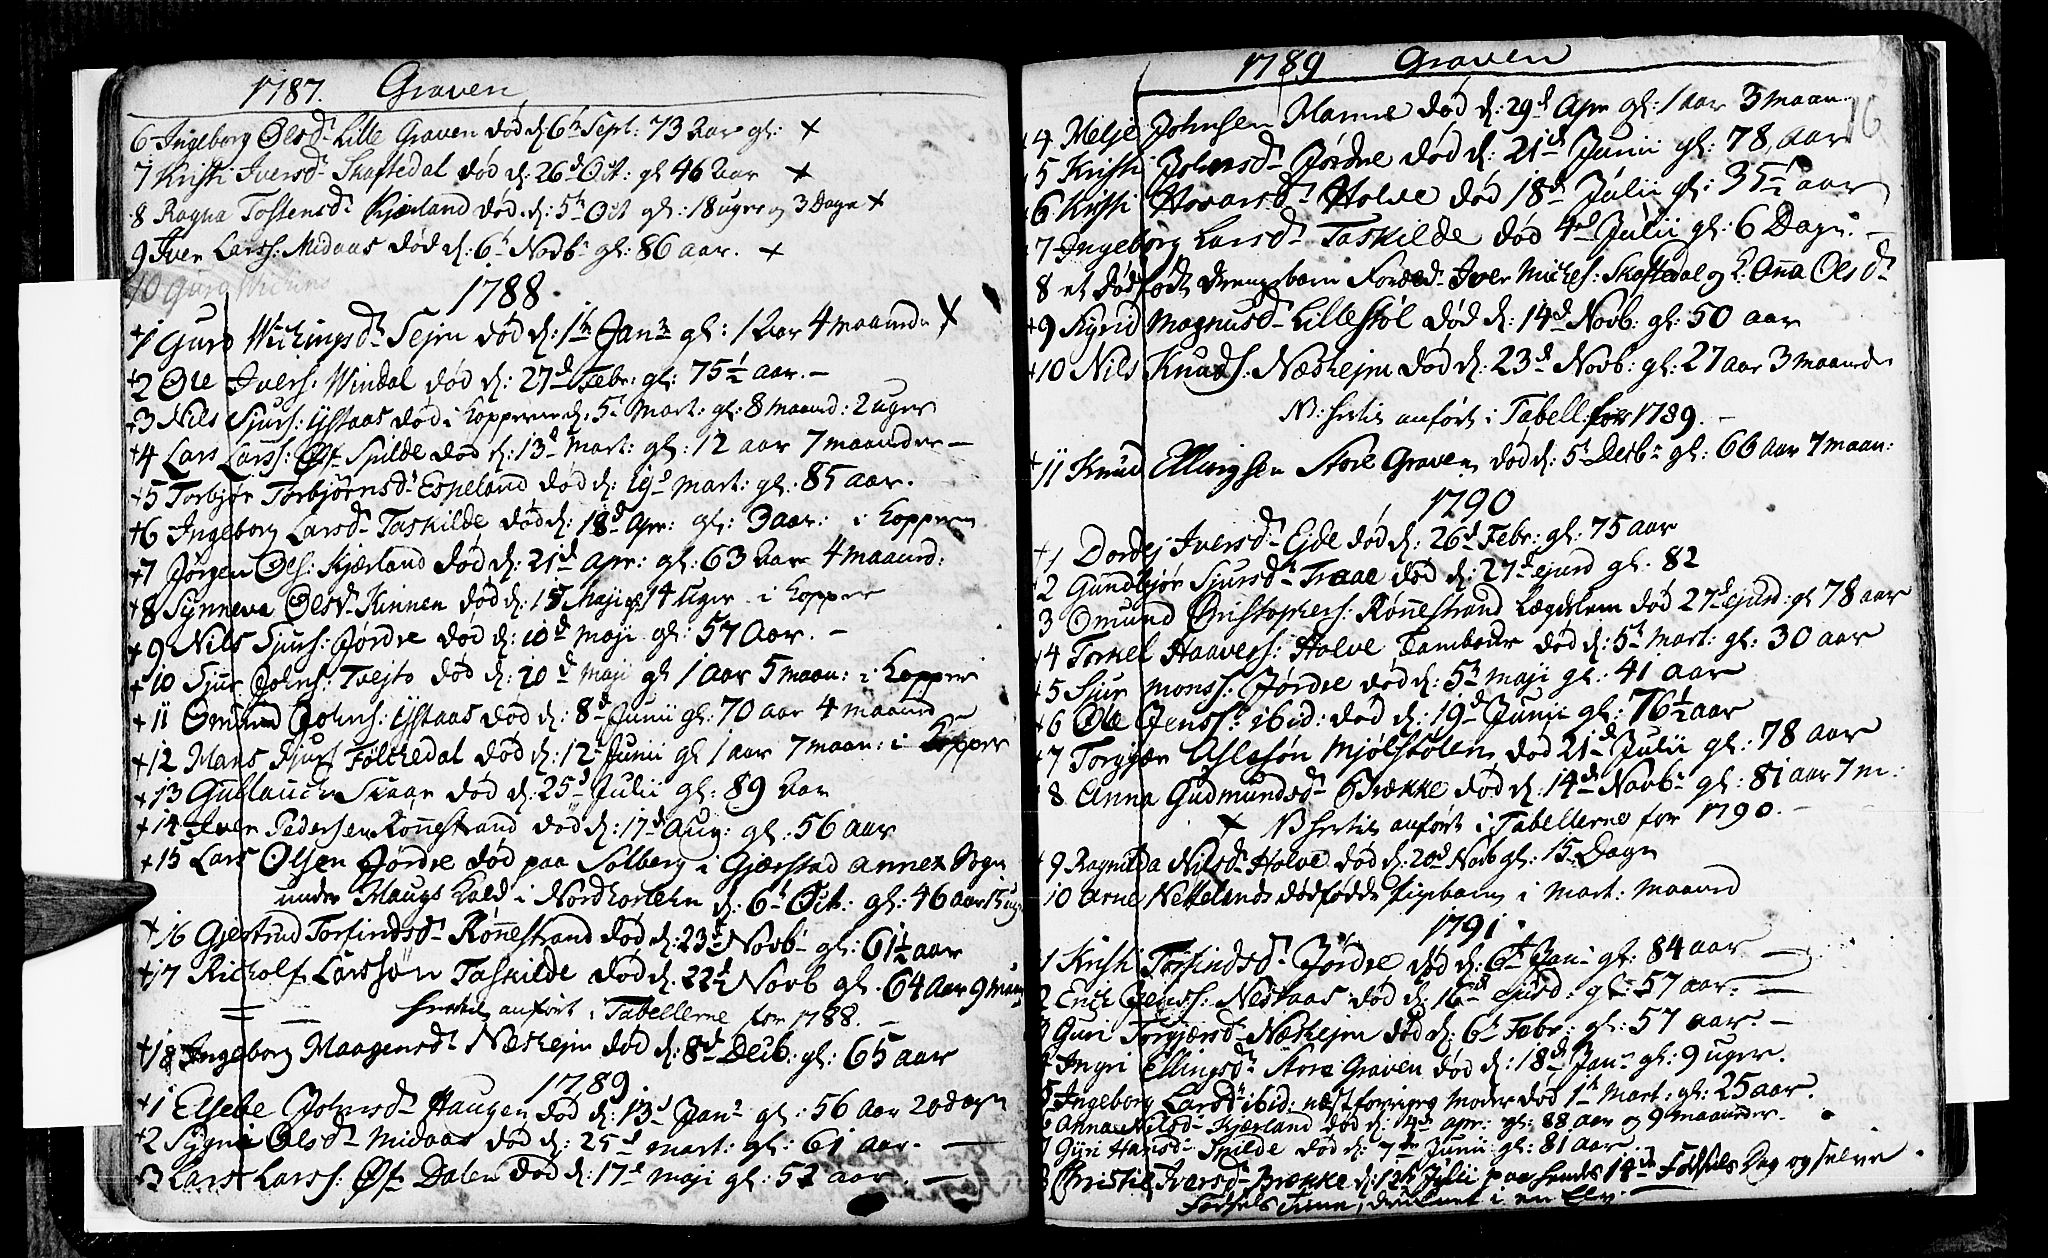 1787. Graven
6 Ingeborg Olsd. Lille Graven død d: 6t Sept: 73 Aar gl: x
7 Kristi Iversd. Skaftedal død d: 26d Oct: gl 46 Aar x
8 Ragna Tostensd. Kjærland død d: 5t Oct gl: 18 uger og 3 Dage x
9 Iver Larss: Midaas død d: 6t Novbr gl: 86 aar. x
10 Gurø
1788
+1 Gurø Wichingsd. Sejm død d: 1t Janr gl: 1 Aar 4 maaneder x
+2 Ole Ivers: Windal død d: 27d Febr: gl: 75½ aar. –
+3 Nils Sjurs: Ystaas død i Kopperne d: 5t Mart: gl: 8 maaned: 2 uger
+4 Lars Larss: Øst Spilde død d: 13d Mart: gl: 12 aar 7 maaneder –
+5 Torbjør Torbjørnsd. Espeland død d: 19d Mart: gl: 85 aar.
+6 Ingeborg Larsd. Taskilde død d: 18d Apr: gl: 3 aar: i Kopperne
+7 Jørgen Ols: Kjærland død d: 21d Apr: gl: 63 Aar 4 maaned:
+8 Synneva Olsd. Kinnen død d: 15 Maji gl 14 uger i Kopper
+9 Nils Sjurs: Jørdre død d: 10d Maji gl: 57 Aar. –
+10 Sjur Johns: Tvejto død d: 20d Maji gl 1 Aar 5 maan: i Kopper
+11 Omund Johns: Ystaas død d: 8d Junii gl: 70 aar 4 maaned
+12 Mans Sjurs Folkedal død d: 12t Junii gl 1 aar 7 maan: i Kopper
+13 Gunlauch Skaar død d: 25d Julii gl: 89 Aar
+14 Iver Pedersen Rønnestrand død d: 17d Aug: gl: 56 aar
+15 Lars Olsen Jørdre død paa Solberg i Gjerstad annex Sogn
under Haugs Kald i Nordhorlehn d: 6t Oct: gl: 46 aar 15 ug
+16 Gjertrud Torfindsd. Rønnestrand død d: 23d Novbr gl: 61½ aar
+17 Richolf Larssøn Taskilde død d. 22d Novb gl. 64 Aar 9 maan
= – hertil anført i Tabellerne for 1788. –
+18 Ingeborg Maagensd. Næshejm død d: 8d Decb: gl: 65 aar
1789
+1 Elsebe Johnsd. Haugen død d: 13d Janr gl: 56 Aar 20 dage
+2 Sygni Olsd. Midaas død d: 25d Mart: gl: 61 aar. –
+3 Lars Larss: Øst Dalen død d: 17d Maji gl: 52 aar. –
1789 Graven
16
+4 Metje Johnsen Manne død d: 29d Apr gl: 1 aar 3 maan
+5 Kristi Johnsd. Jørdre død d: 21d Junii gl: 78, aar
+6 Kristi Hovarsd. Holve død 18d Julii gl: 35½ aar
+7 Ingeborg Larsd. Taskilde død 4d Julii gl: 6 Dage. –
8 et dødfødt drengebarn Foræld. Iver Michels: Skaftedal og K: Anna Olsd.
+9 Sigrid Magnusd. Lillestøl død d: 14d Novb: gl: 50 aar
+10 Nils Knuds: Næshejm død d: 23d Novb: gl: 27 aar 3 maaneder
NB: hertil anført i Tabell: for 1789. –
+11 Knud Ellingsen Store Graven død d: 5t Decbr gl: 66 Aar 7 maan:
1790
+1 Dordej Iversd. Ejde død d: 26d Febr: gl: 75 aar
+2 Gundbjør Sjursd. Traae død d: 27d ejusd gl. 82
3 Omund Christophers: Rønnestrand Lægdslem død 27d ejusd: gl 78 aar
+4 Torkel Haavers: Holve Tambour død d: 5t Mart: gl: 30 aar
+5 Sjur Monss: Jørdre død d: 5t Maji gl: 41 aar
+6 Ole Jenss: ibid: død d: 19d Junii gl: 76½ aar
+7 Torgjær Aslesøn Mjølstølen død 21d Julii gl: 78 aar
8. Anna Gudmundsd. Brække død d: 14d Novbr gl: 81 aar 7 m:
+ NB hertil anført i Tabellerne for 1790. –
+9 Ragnilda Nilsd. Holve død d: 20d Novb gl: 15 Dage
10 Arne Nettelands dødfødde pigebarn i Mart: maaned
1791.
1 Kristi Torfindsd. Jørdre død d: 6t Janr gl: 84 aar –
2 Eric Jenss: Nestaas død d: 16d ejusd: gl: 57 aar. –
3 Guri Torgjærsd. Næshejm død d: 6t Febr: gl: 57 aar. –
4 Ingri Ellingsd. Store Graven død d: 18d Janr gl: 9 uger.
5 Ingeborg Larsd. ibid: næstforriges moder død 1t Mart: gl: 25 aar.
6 Anna Nilsd. Kjærland død d: 14d apr: gl: 88 aar og 9 maaneder.
7 Gyri Hansd. Spilde død d: 7de Junii gl: 81 aar
8 Christie Iversd. Brække d: 12t Julii paa hendes 14de Fødsels Dag og selve
Fødsels Time, druknet i en Elv.